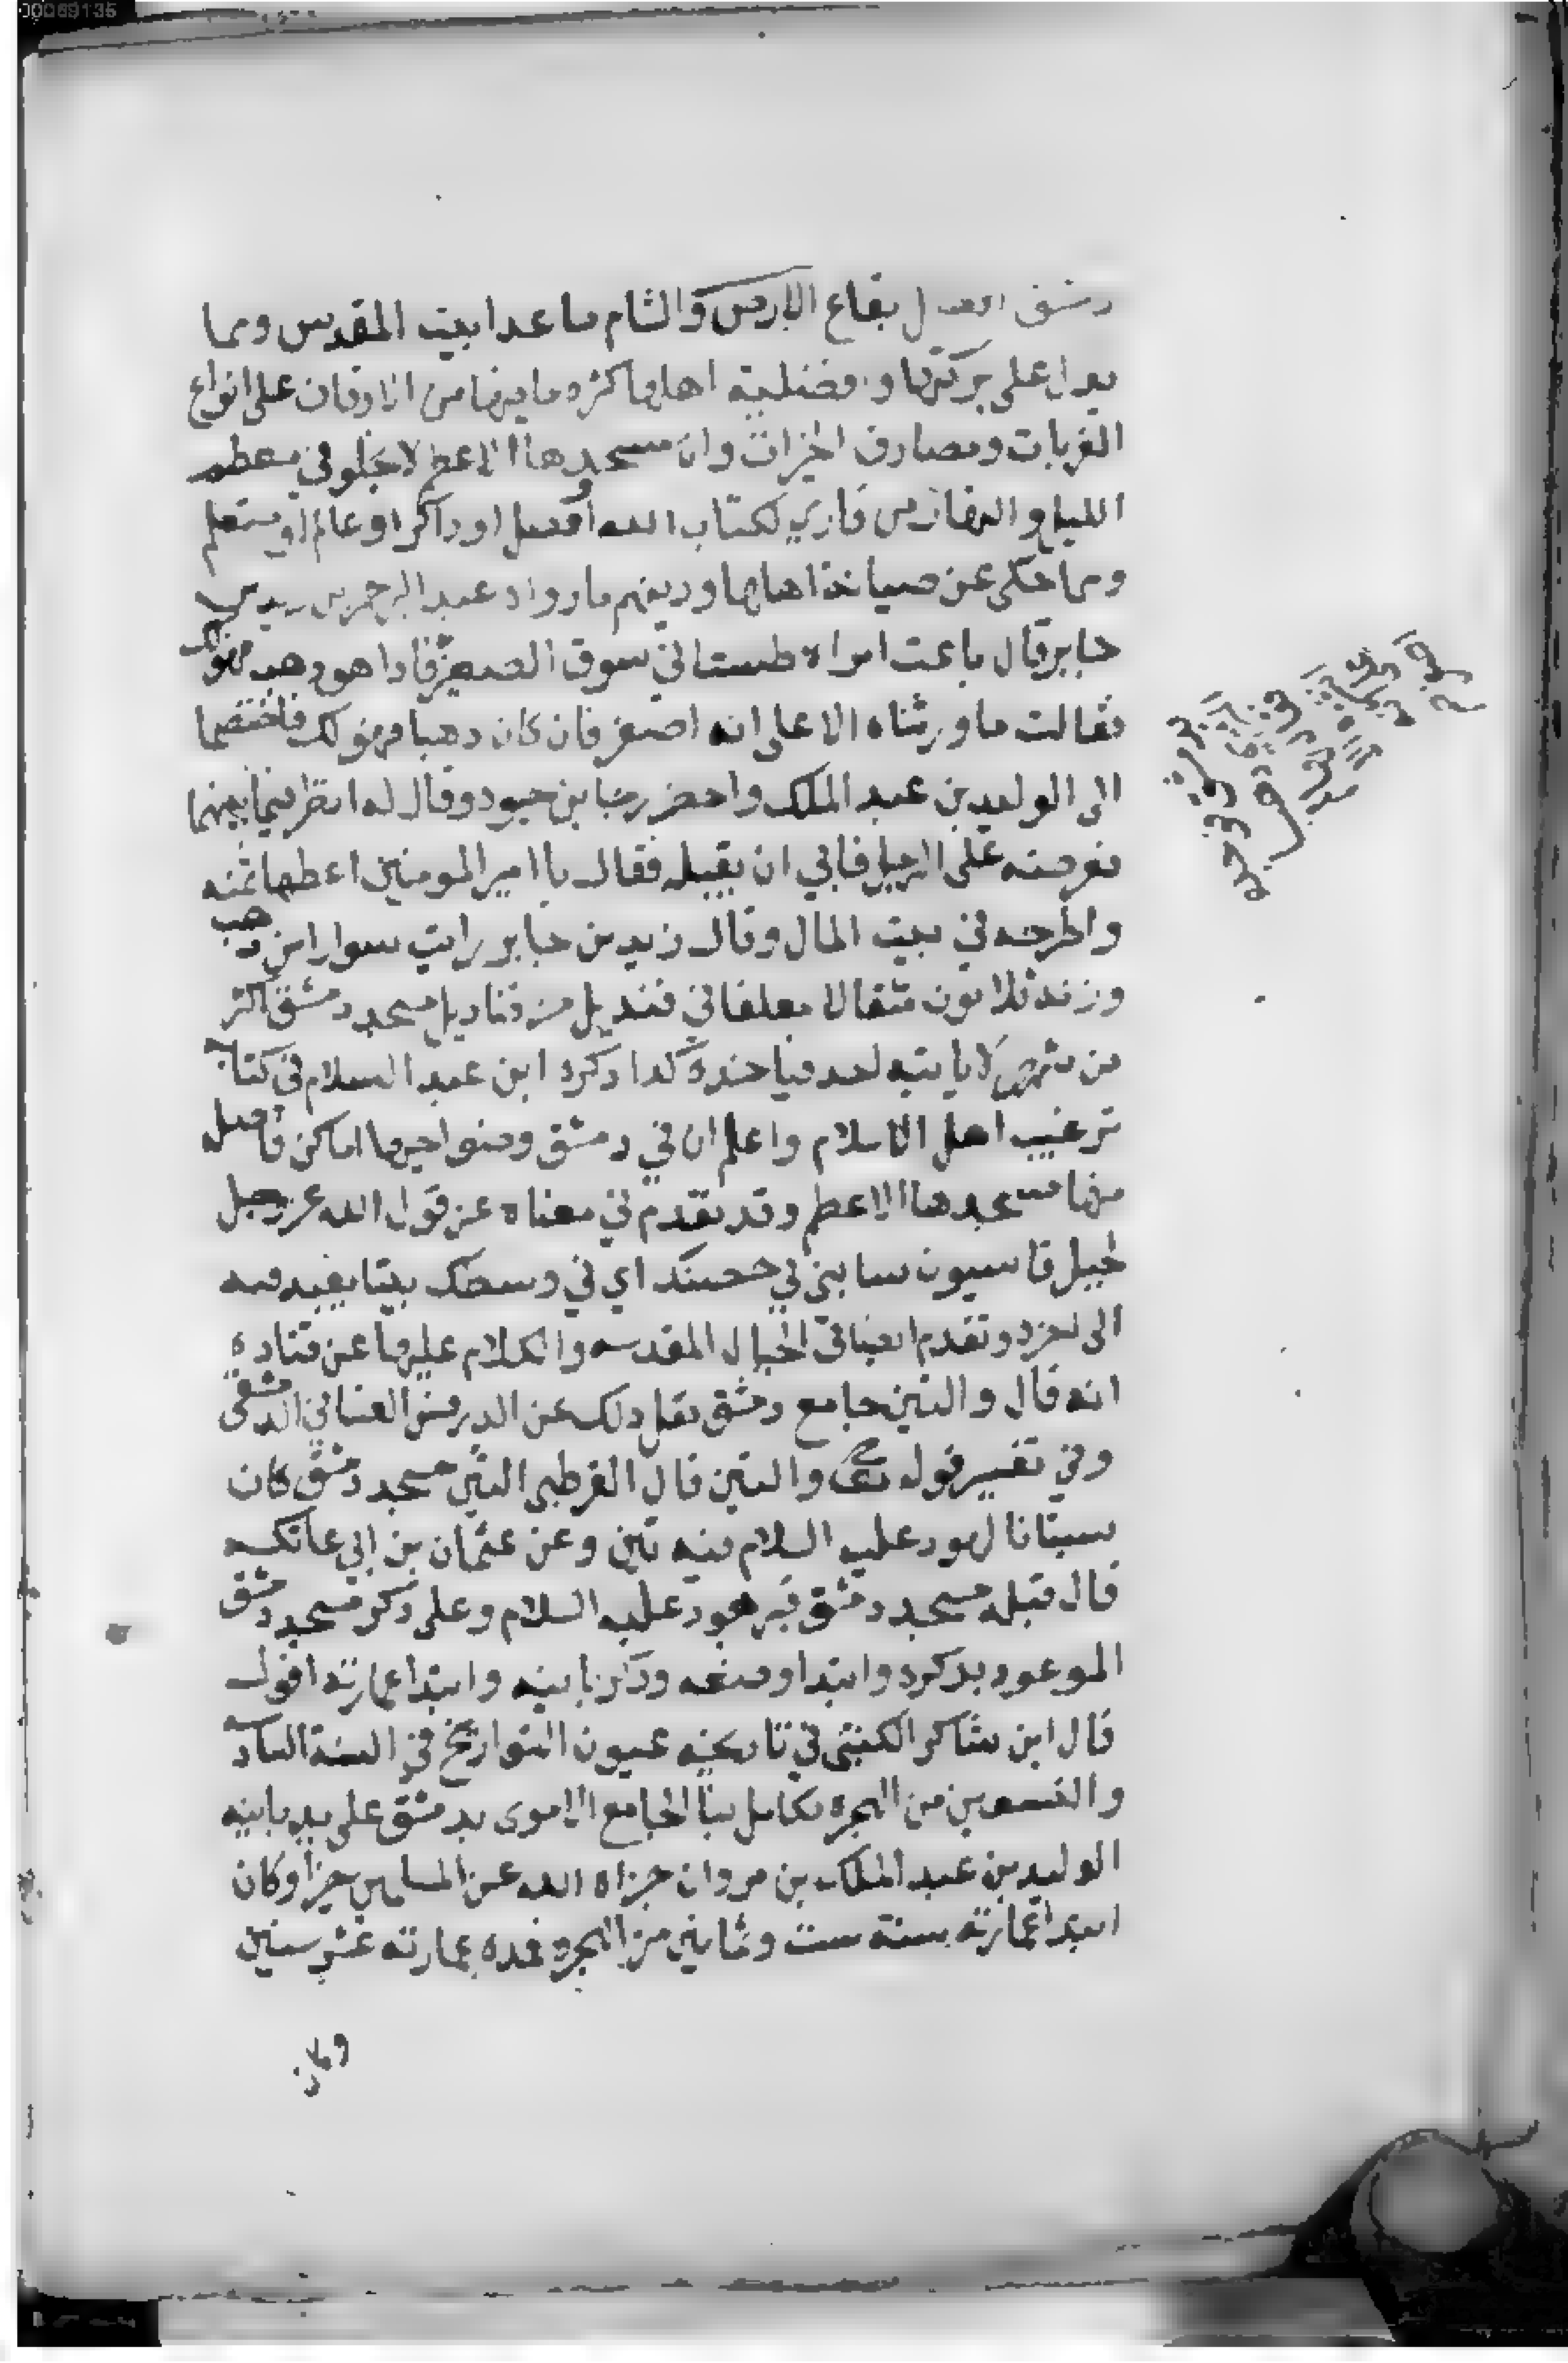 00069135
دمشق افضل بقاع الارض والشام ما عدا بيت المقدس ومما
يدل على بركتها وفضلية اهلها كثره ما فيها من الاوقاف على انواع
القربات ومصارف الخيرات وان مسجدها الاعظم لا يخلو في معظم
الليل والنهار من قاري لكتاب الله او مصل او ذاكر او عالم او متعلم
ومما حكى عن صيانة اهلها ودينهم ما رواه عبد الرحمن بن يزيد بن
جابر قال باعت امراة طستا في سوق الصفر فاذا هو ذهب
فقالت ما ورثناه الا على انه اصفر فان كان ذهبا فهو لك فاختصما
الى الوليد بن عبد الملك واحضر رجا بن حيوه وقال له انظر فيما بينهما
فعرضه على الرجل فابي ان يقبله فقال يا امير المومنين اعطها ثمنه
واطرحه في بيت المال وقال زيد بن جابر رايت سوارا من ذهب
وزنه ثلاثون مثقالا معلقا في قنديل من قناديل مسجد دمشق اكثر
من شهر لا ياتيه احد فياخذه كذا ذكره ابن عبد السلام في كتابه
ترغيب اهل الاسلام واعلم ان في دمشق وضواحيها اماكن فاضله
منها مسجدها الاعظم وقد تقدم في معناه عن قول الله عز وجل
لجبل قاسيون سابني في حضنك اي في وسطك بيتا يعبد فيه
الى اخره وتقدم ايضا في الجبال المقدسه والكلام عليها عن قتاده
انه قال والتين جامع دمشق نقل ذلك عن الدر فس الغساني الدمشقي
وفي تفسير قوله تعالى والتين قال القرطبي التين مسجد دمشق كان
بستانا لهود عليه السلام فيه تين وعن عثمان بن ابي عاتكه
قال قبله مسجد دمشق قبر هود عليه السلام وعلى ذكر مسجد دمشق
الموعود بذكره وابتدا وضعه وذكر بانيه وابتدا عمارته اقول
قال ابن شاكر الكتبي في تاريخه عيون التواريخ في السنة السادسه
والتسعين من الهجره تكامل بنا الجامع الاموى بدمشق على يد بانيه
الوليد بن عبد الملك بن مروان جزاه الله عن المسلمين خيرا وكان
ابتدا عمارته سنة ست وثمانين من الهجره فمده عمارته عشر سنين
وكان